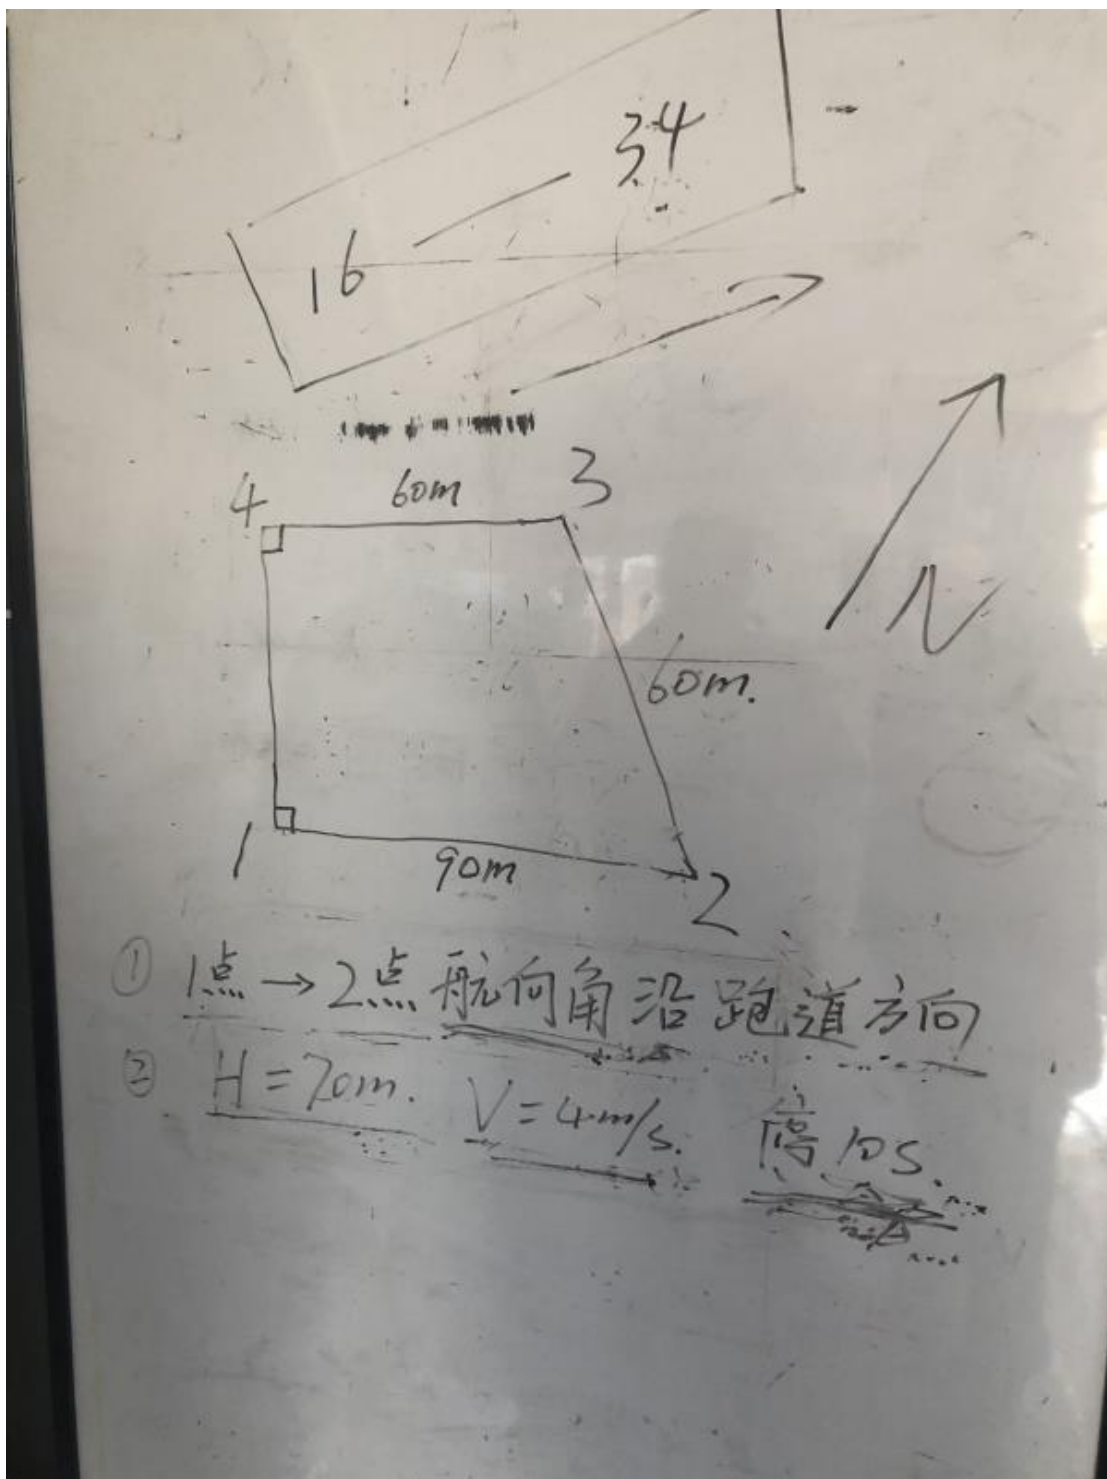 34
16
4 60m 3
N
60m.
1 90m 2
① 1点→2点 航向角沿跑道方向
② H=70m. V=4m/s. 停10s.